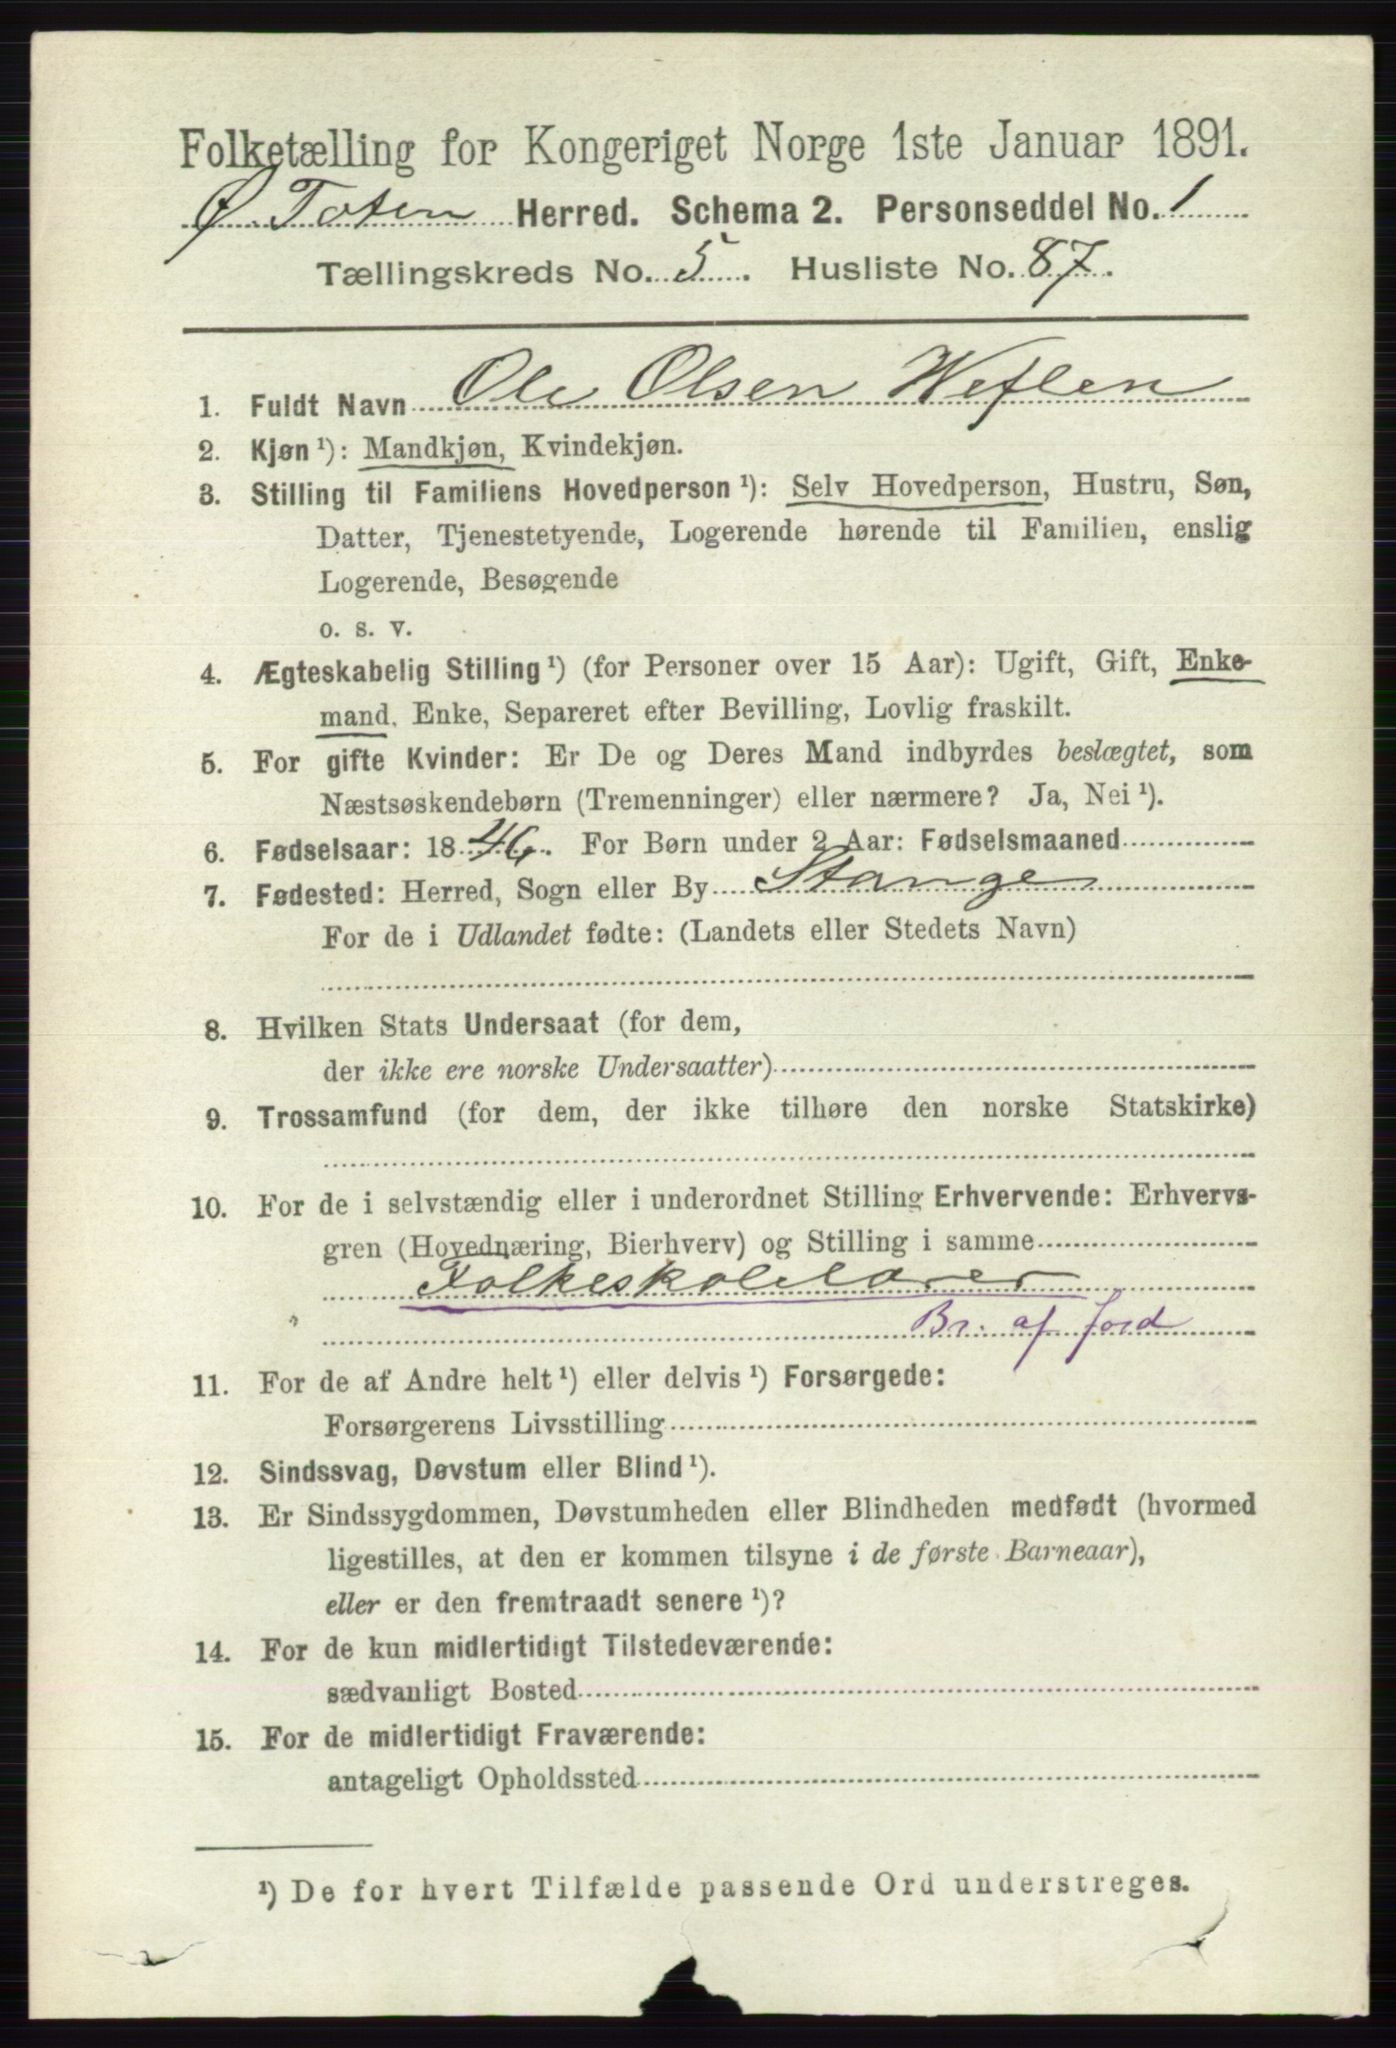 Folketælling for Kongeriget Norge 1ste Januar 1891.
Ø. Toten Herred. Schema 2. Personseddel No. 1
Tællingskreds No. 5. Husliste No. 87.
1. Fuldt Navn Ole Olsen Weflen
2. Kjøn ¹): Mandkjøn, Kvindekjøn.
3. Stilling til Familiens Hovedperson ¹): Selv Hovedperson, Hustru, Søn,
Datter, Tjenestetyende, Logerende hørende til Familien, enslig
Logerende, Besøgende
o. s. v.
4. Ægteskabelig Stilling ¹) (for Personer over 15 Aar): Ugift, Gift, Enke-
mand, Enke, Separeret efter Bevilling, Lovlig fraskilt.
5. For gifte Kvinder: Er De og Deres Mand indbyrdes beslægtet, som
Næstsøskendebørn (Tremenninger) eller nærmere? Ja, Nei ¹).
6. Fødselsaar: 1846. For Børn under 2 Aar: Fødselsmaaned
7. Fødested: Herred, Sogn eller By Stange
For de i Udlandet fødte: (Landets eller Stedets Navn)
8. Hvilken Stats Undersaat (for dem,
der ikke ere norske Undersaatter)
9. Trossamfund (for dem, der ikke tilhøre den norske Statskirke)
10. For de i selvstændig eller i underordnet Stilling Erhvervende: Erhvervs-
gren (Hovednæring, Bierhverv) og Stilling i samme
Folkeskolelærer
Br. af jord
11. For de af Andre helt ¹) eller delvis ¹) Forsørgede:
Forsørgerens Livsstilling
12. Sindssvag, Døvstum eller Blind ¹).
13. Er Sindssygdommen, Døvstumheden eller Blindheden medfødt (hvormed
ligestilles, at den er kommen tilsyne i de første Barneaar),
eller er den fremtraadt senere ¹)?
14. For de kun midlertidigt Tilstedeværende:
sædvanligt Bosted
15. For de midlertidigt Fraværende:
antageligt Opholdssted
¹) De for hvert Tilfælde passende Ord understreges.